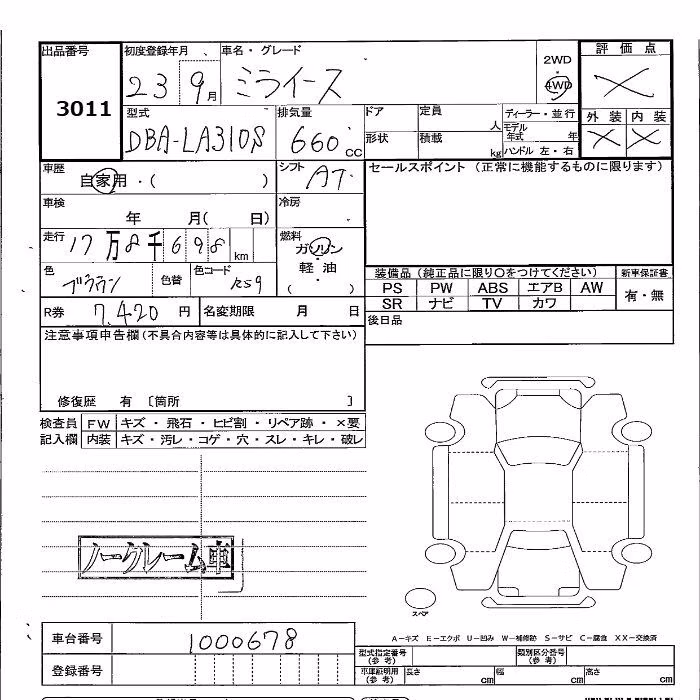 出品番号
3011
初度登録年月
23 9月
車名・グレード
ミライース
2WD
4WD
評価点
×
外装 内装
× ×
型式
DBA-LA310S
排気量
660cc
ドア
定員
人
形状
積載
kg
ディーラー・並行
モデル年式 年
ハンドル 左・右
車歴
自家用・( )
シフト
AT
セールスポイント (正常に機能するものに限ります)
車検
年 月( 日)
冷房
走行
17万8千698km
燃料
ガソリン
・
軽・油
( )
色
ブラウン
色替
色コード
R59
装備品 (純正品に限り○をつけてください)
新車保証書
PS PW ABS エアB AW
SR ナビ TV カワ
有・無
R券
7,420円
名変期限 月 日
後日品
注意事項申告欄(不具合内容等は具体的に記入して下さい)
修復歴 有 〔箇所 〕
検査員
記入欄
FW キズ・飛石・ヒビ割・リペア跡・×要
内装 キズ・汚レ・コゲ・穴・スレ・キレ・破レ
ノークレーム車
スペア
A-キズ E-エクボ U-凹み W-補修跡 S-サビ C-腐食 XX-交換済
車台番号
1000678
登録番号
型式指定番号
(参考)
類別区分番号
(参考)
車庫証明用
(参考)
長さ cm 幅 cm 高さ cm